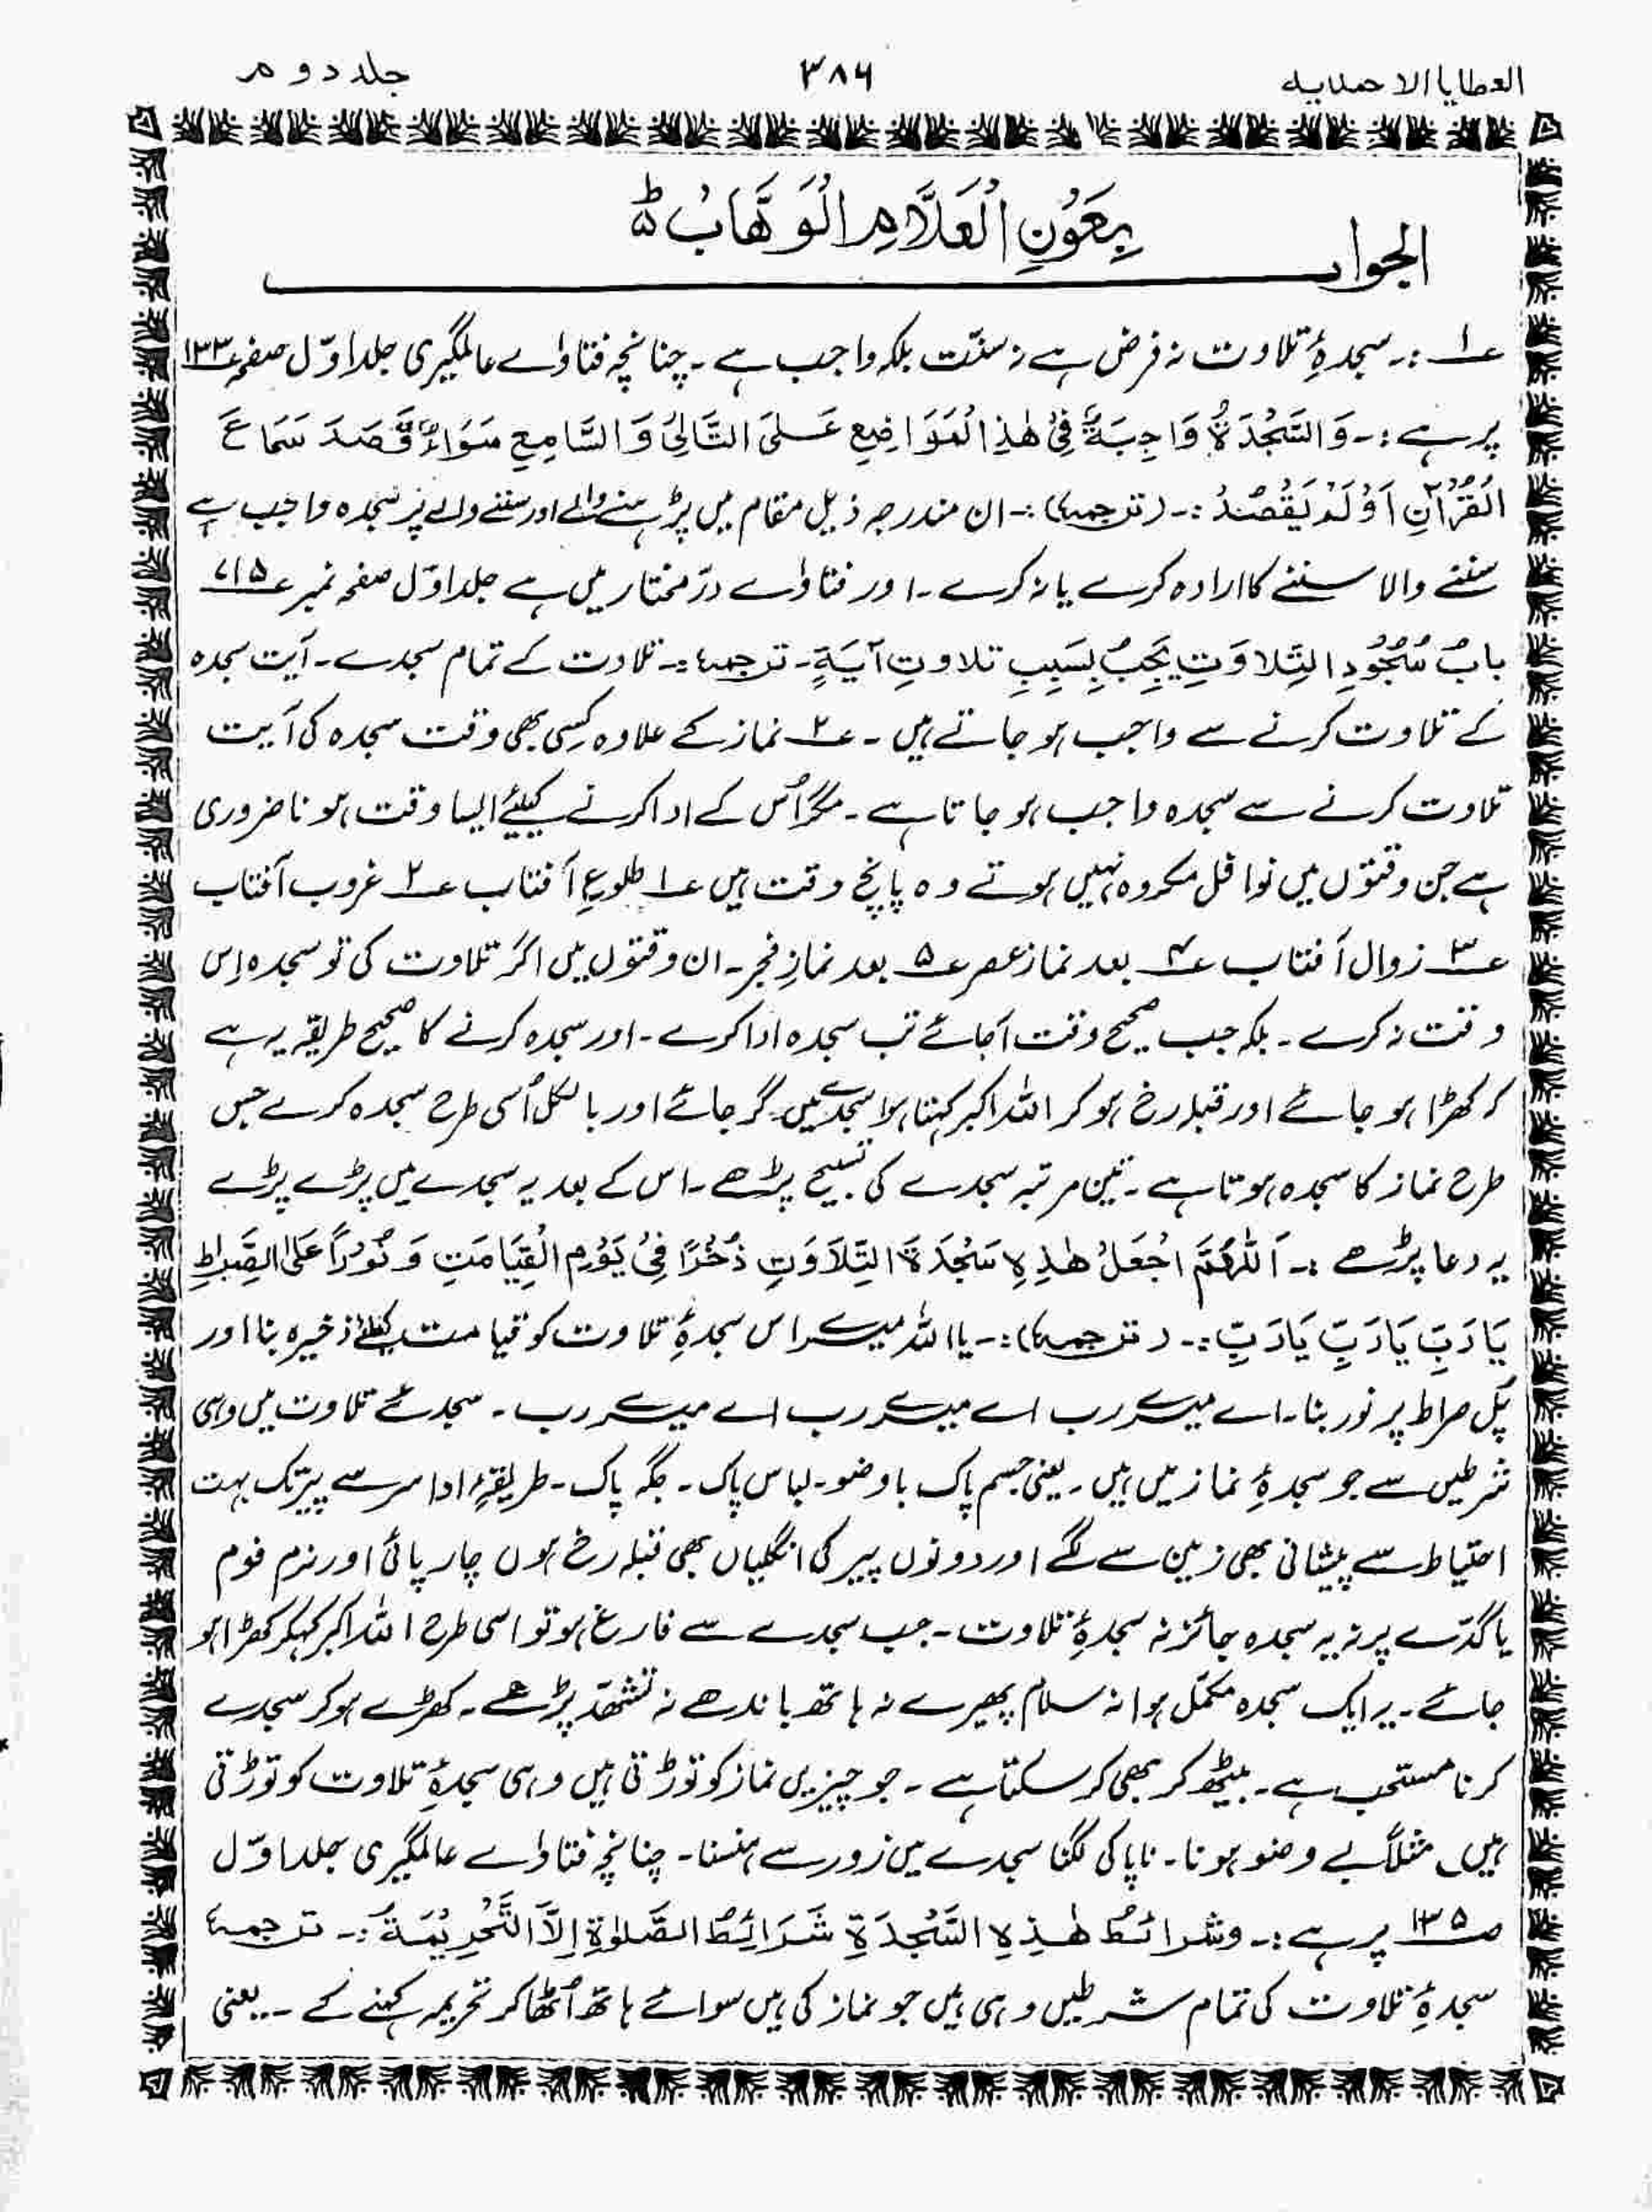 العطایا الاحمدیہ
۳۸۶
جلد دوم
بِعَوْنِ الْعَلَّامِ الْوَهَّابْ ؕ
الجواب
؏۱ :۔ سجدۂ تلاوت نہ فرض ہے نہ سنّت بلکہ واجب ہے ۔ چنانچہ فتاواے عالمگیری جلد اوّل صفحہ ؏۱۳۳
پر ہے :۔ وَالسَّجْدَةُ وَاجِبَةٌ فِیْ هٰذِا الْمَوَاضِعِ عَلَی التَّالِیْ وَالسَّامِعِ سَوَاءٌ قَصَدَ سَمَاعَ
الْقُرْاٰنِ اَوْ لَمْ يَقْصُدْ :۔ (ترجمہ) :۔ ان مندرجہ ذیل مقام میں پڑہنے والے اور سننے والے پر سجدہ واجب ہے
سننے والا سننے کا ارادہ کرے یا نہ کرے ۔ اور فتاواے درّ مختار میں ہے جلد اوّل صفحہ نمبر ؏۷۱۵
بابُ سُجُوْدِ التِّلاوَتِ يَجِبُ بِسَبِبِ تلاوتِ آيَةٍ ۔ ترجمہ :۔ تلاوت کے تمام سجدے ۔ آیت سجدہ
کے تلاوت کرنے سے واجب ہو جاتے ہیں ۔ ؏۲ نماز کے علاوہ کسِی بھی وقت سجدہ کی آیت
تلاوت کرنے سے سجدہ واجب ہو جاتا ہے ۔ مگر اُس کے ادا کرنے کیلئے ایسا وقت ہونا ضروری
ہے جن وقتوں میں نوافل مکروہ نہیں ہوتے وہ پانچ وقت ہیں ؏۱ طلوعِ آفتاب ؏۲ غروب آفتاب
؏۳ زوال آفتاب ؏۴ بعد نماز عصر ؏۵ بعد نمازِ فجر ۔ ان وقتوں میں اگر تلاوت کی تو سجدہ اِس
وقت نہ کرے ۔ بلکہ جب صحیح وقت آجائے تب سجدہ ادا کرے ۔ اور سجدہ کرنے کا صحیح طریقہ یہ ہے
کہ کھڑا ہو جائے اور قبلہ رخ ہو کر اللہ اکبر کہتا ہوا سجدے میں گر جائے اور بالکل اُسی طرح سجدہ کرے جس
طرح نماز کا سجدہ ہوتا ہے ۔ تین مرتبہ سجدے کی تسبیح پڑھے ۔ اس کے بعد یہ سجدے میں پڑے پڑے
یہ دعا پڑھے :۔ اَللّٰهُمَّ اجْعَلْ هٰذِهِ سَجْدَةَ التِّلَاوَتِ ذُخْرًا فِیْ يَوْمِ الْقِيَامَتِ وَ نُوْرًا عَلَى الصِّرَاطِ
يَارَبِّ يَارَبِّ يَارَبِّ :۔ (ترجمہ) :۔ یا اللہ میرے اس سجدۂ تلاوت کو قیامت کیلئے ذخیرہ بنا اور
پُل صراط پر نور بنا ۔ اے میرے رب اے میرے رب اے میرے رب ۔ سجدئے تلاوت میں وہی
شرطیں سے جو سجدۂ نماز میں ہیں ۔ یعنی جسم پاک باوضو ۔ لباس پاک ۔ جگہ پاک ۔ طریقۂ ادا سر سے پیر تک بہت
احتیاط سے پیشانی بھی زمین سے لگے اور دونوں پیر کی انگلیاں بھی قبلہ رخ ہوں چارپائی اور نرم فوم
یا گدّے پر نہ یہ سجدہ جائز نہ سجدۂ تلاوت ۔ جب سجدے سے فارغ ہو تو اسی طرح اللہ اکبر کہکر کھڑا ہو
جائے ۔ یہ ایک سجدہ مکمّل ہوا نہ سلام پھیرے نہ ہاتھ باندھے نہ تشھّد پڑھے ۔ کھڑے ہو کر سجدے
کرنا مستحب ہے ۔ بیٹھ کر بھی کر سکتا ہے ۔ جو چیزیں نماز کو توڑتی ہیں وہی سجدۂ تلاوت کو توڑتی
ہیں مثلاً بے وضو ہونا ۔ ناپاکی لگنا سجدے میں زور سے ہنسنا ۔ چنانچہ فتاواے عالمگیری جلد اوّل
صـ۱۳۵ پر ہے :۔ وشرائطُ هٰذِهِ السَّجْدَةِ شَرَائِطُ الصَّلٰوةِ اِلَّا التَّحْرِيْمَةَ :۔ ترجمہ
سجدۂ تلاوت کی تمام شرطیں وہی ہیں جو نماز کی ہیں سوائے ہاتھ اُٹھا کر تحریمہ کہنے کے ۔ یعنی